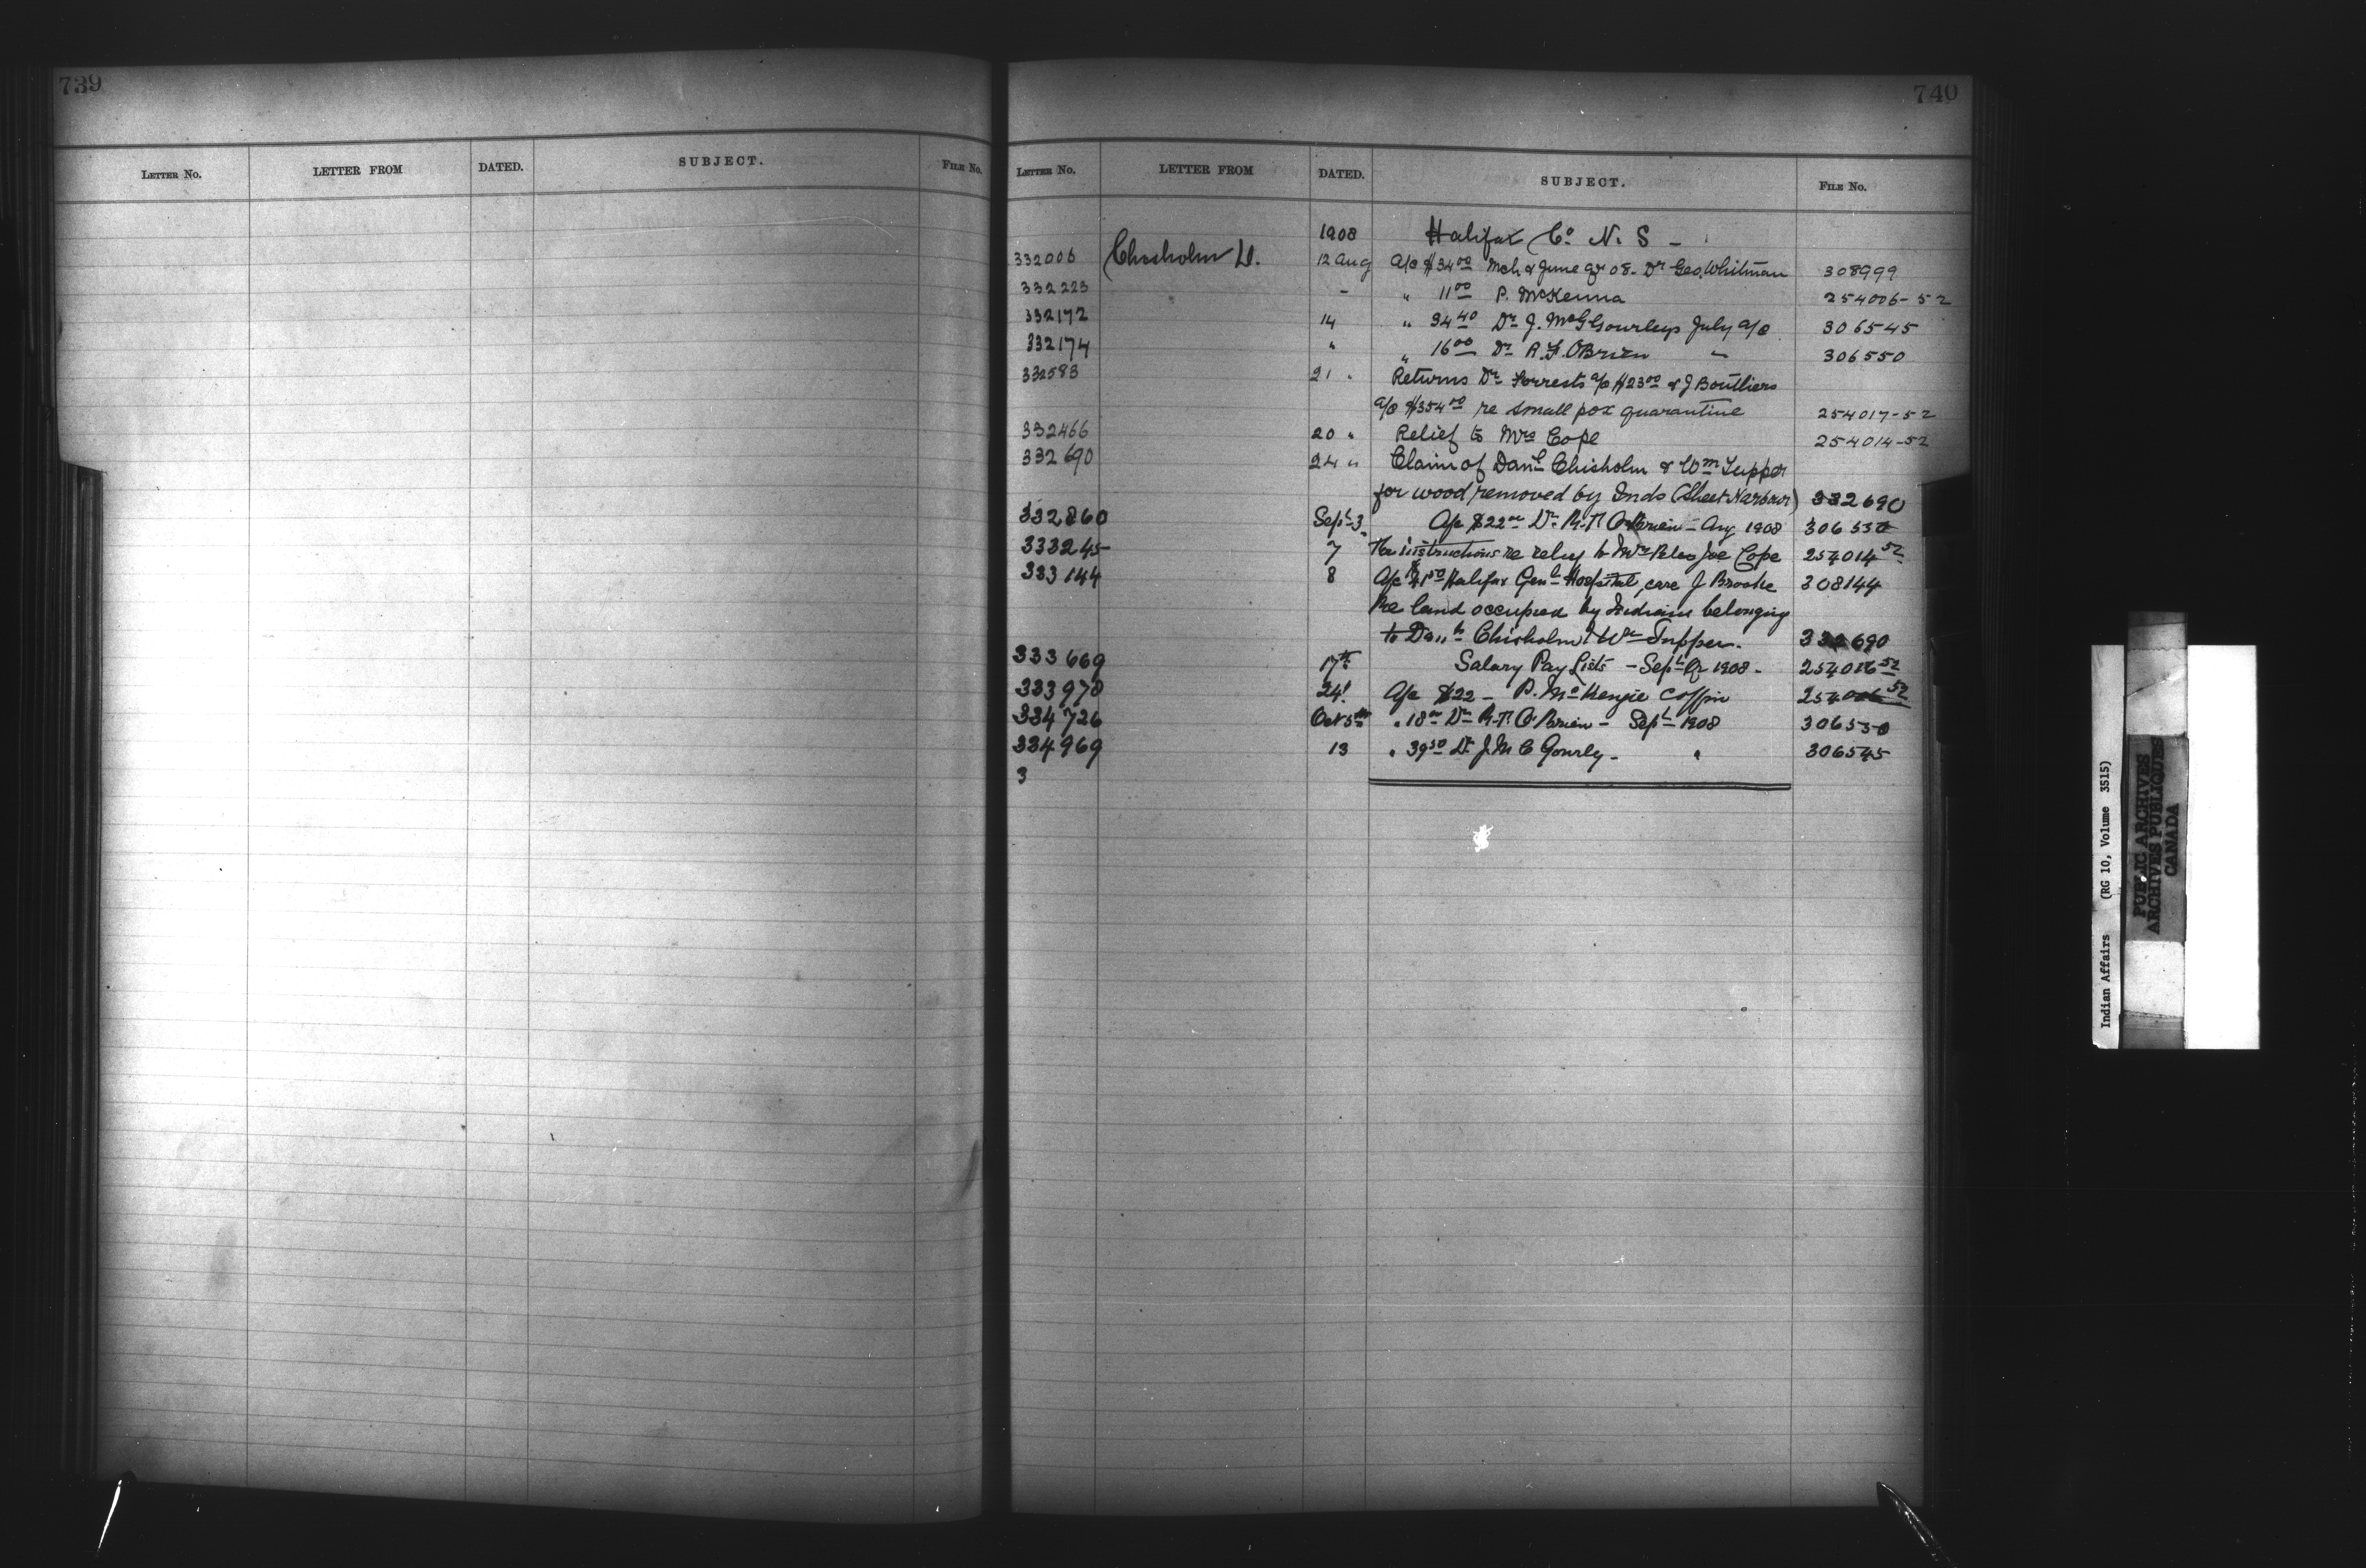 739
LETTER NO. LETTER FROM DATED. SUBJECT. FILE NO.
740
LETTER NO. LETTER FROM DATED. SUBJECT. FILE NO.
1908 Halifax Co. N. S -
332006 Chisholm D. 12 Aug a/c $34.00 Mch & June qr 08. Dr Geo. Whitman 308999
332223 - " 11.00 P. McKenna 254006-52
332172 14 " 34.40 Dr J. McG Gourleys July a/c 306545
332174 " " 16.00 Dr R. F. OBrien " 306550
332583 21 " Returns Dr Forrests a/c $23.00 & J Boutliers
a/c $354.00 re small pox quarantine 254017-52
332466 20 " Relief to Mrs Cope 254014-52
332690 24 " Claim of Danl Chisholm & Wm Tupper
for wood removed by Inds (Sheet Harbour) 332690
332860 Sept 3 A/c $22.00 Dr R. T. O'Brien - Aug 1908 306550
333245 7 instructions re relief to Mrs Joe Cope 254014-52
333144 8 A/c Halifax Genl Hospital, care J Brooke 308144
Re land occupied by Indians belonging
to Danl Chisholm & Wm Tupper. 332690
333669 17th Salary Pay Lists - Sept Qr 1908 - 254016-52
333978 24 A/c $22 - P. McKenzie coffin 254006-52
334726 Oct 5th " 18.00 Dr R. T. O'Brien - Sept 1908 306550
334969 13 " 39.50 Dr J. M C Gourly - " 306545
3
Indian Affairs (RG 10, Volume 3515)
PUBLIC ARCHIVES
ARCHIVES PUBLIQUES
CANADA